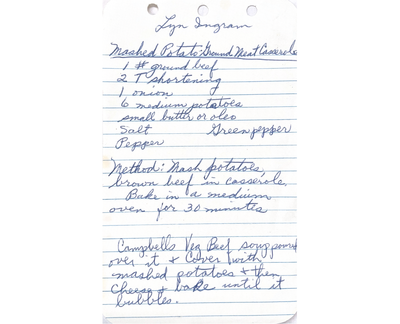 Lyn Ingram
Mashed Potato Ground Meat Casserole
1 # ground beef
2 T shortening
1 onion
6 medium potatoes
small butter or oleo
Salt Green pepper
Pepper
Method: Mash potatoes,
brown beef in casserole.
Bake in a medium
oven for 30 minutes
Campbells Veg Beef soup pour
over it & cover with
mashed potatoes & then
cheese & bake until it
bubbles.